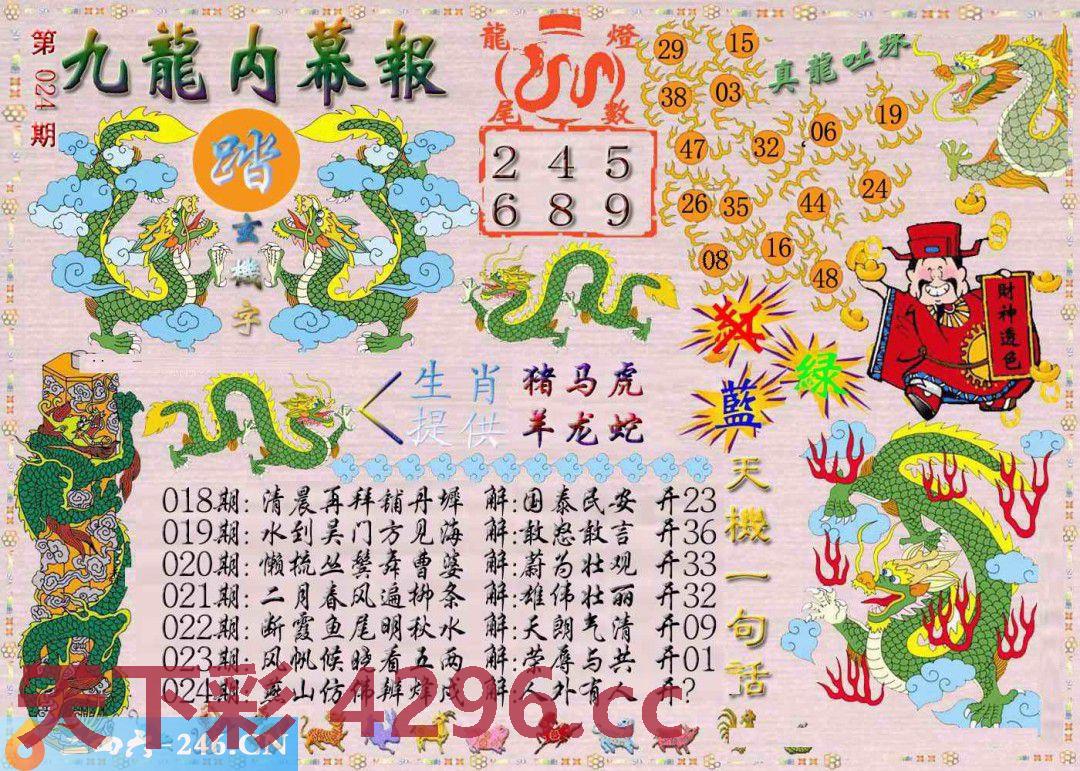 第024期
九龍内幕報
踏
玄機字
龍燈
尾數
2 4 5
6 8 9
真龍吐珠
29 15
38 03
47 32 06 19
26 35 44 24
08 16 48
紅
綠
藍
財神透色
生肖提供
猪马虎
羊龙蛇
天機一句話
018期: 清晨再拜铺丹墀 解:国泰民安 开23
019期: 水到吴门方见海 解:敢怒敢言 开36
020期: 懒梳丛鬓舞曹婆 解:蔚为壮观 开33
021期: 二月春风遍柳条 解:雄伟壮丽 开32
022期: 断霞鱼尾明秋水 解:天朗气清 开09
023期: 风帆候晓看五两 解:荣辱与共 开01
024期: 燕山仿佛辩烽戍 解:人外有人 开?
天下彩 4296.cc
=246.CN